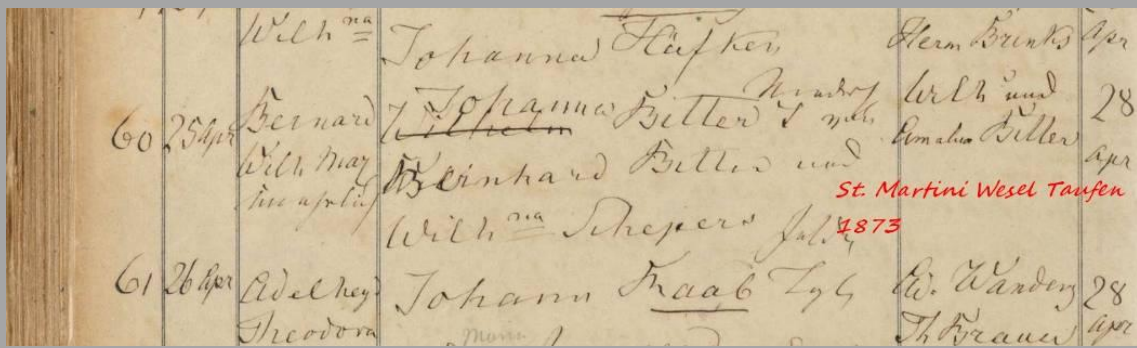 Wilh na
Johanna Häfken
Herm Brinks
Apr
60 25 Apr Bernard
Wilh Max
Johanna
Wilhelm Bitter
Reinhard Bitter und
Wilh na Schepers
Wilh und
Amalia Bitter
28
Apr
St. Martini Wesel Taufen
1873
61 26 Apr Adelheyd
Theodora
Johann Raab
Ed.
Th Brauer
28
Apr